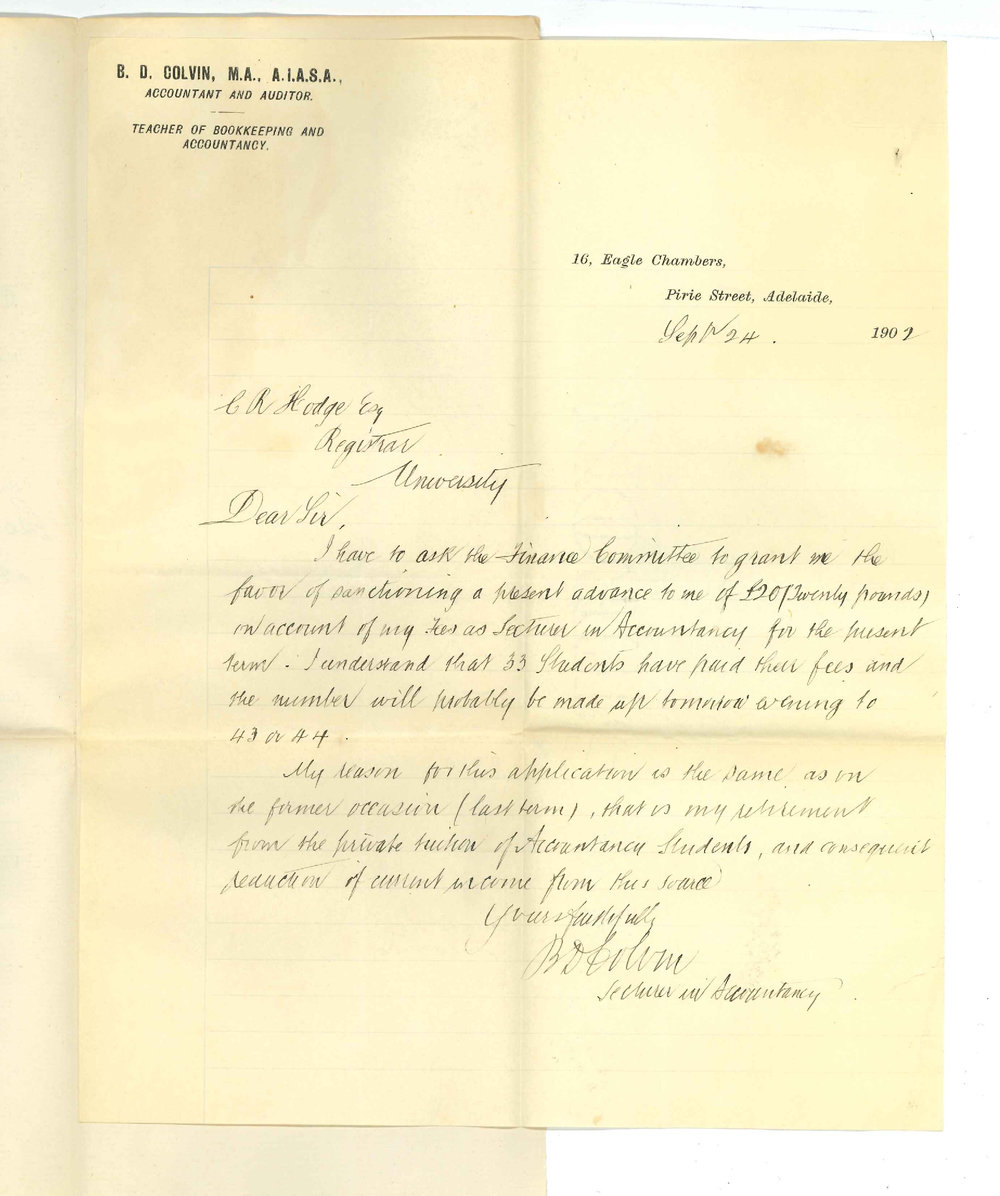 B. D. COLVIN, M.A., A.I.A.S.A.,
ACCOUNTANT AND AUDITOR.
TEACHER OF BOOKKEEPING AND
ACCOUNTANCY.
16, Eagle Chambers,
Pirie Street, Adelaide,
Sept 24. 1902
C R Hodge Esq
Registrar
University
Dear Sir,
I have to ask the Finance Committee to grant me the
favor of sanctioning a present advance to me of £20 (Twenty pounds)
on account of my fees as Lecturer in Accountancy for the present
term. I understand that 33 Students have paid their fees and
the number will probably be made up tomorrow evening to
43 or 44.
My reason for this application is the same as on
the former occasion (last term), that is my retirement
from the private tuition of Accountancy Students, and consequent
reduction of current income from this source
Yours faithfully
B D Colvin
Lecturer in Accountancy